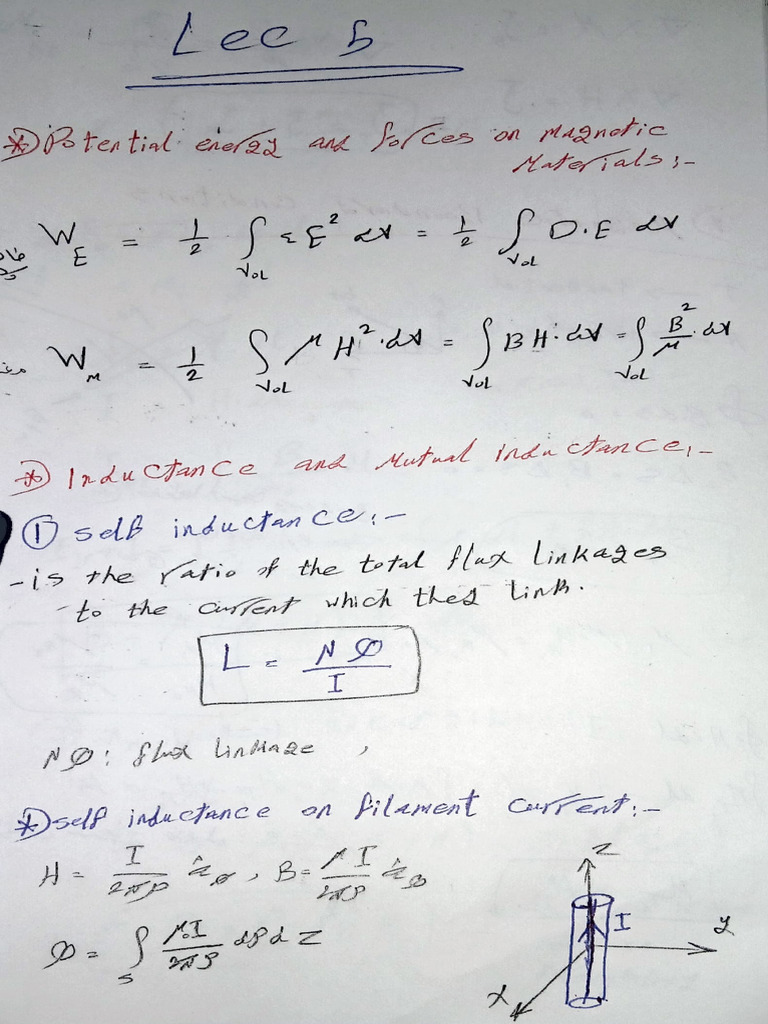 Lec 5
* Potential energy and forces on Magnetic
Materials :-
W_E = 1/2 ∫_Vol ε E² dv = 1/2 ∫_Vol D.E dv
W_M = 1/2 ∫_Vol μ H² . dv = ∫_Vol B H . dv = ∫_Vol B²/μ . dv
* Inductance and Mutual inductance :-
① self inductance :-
- is the ratio of the total flux linkages
to the current which they link.
L = NØ/I
NØ : flux linkage ,
* self inductance on filament current :-
H = I/2πρ â_ø , B = μI/2πρ â_ø
Ø = ∫_s μ₀I/2πρ dρ d z
z
I
y
x